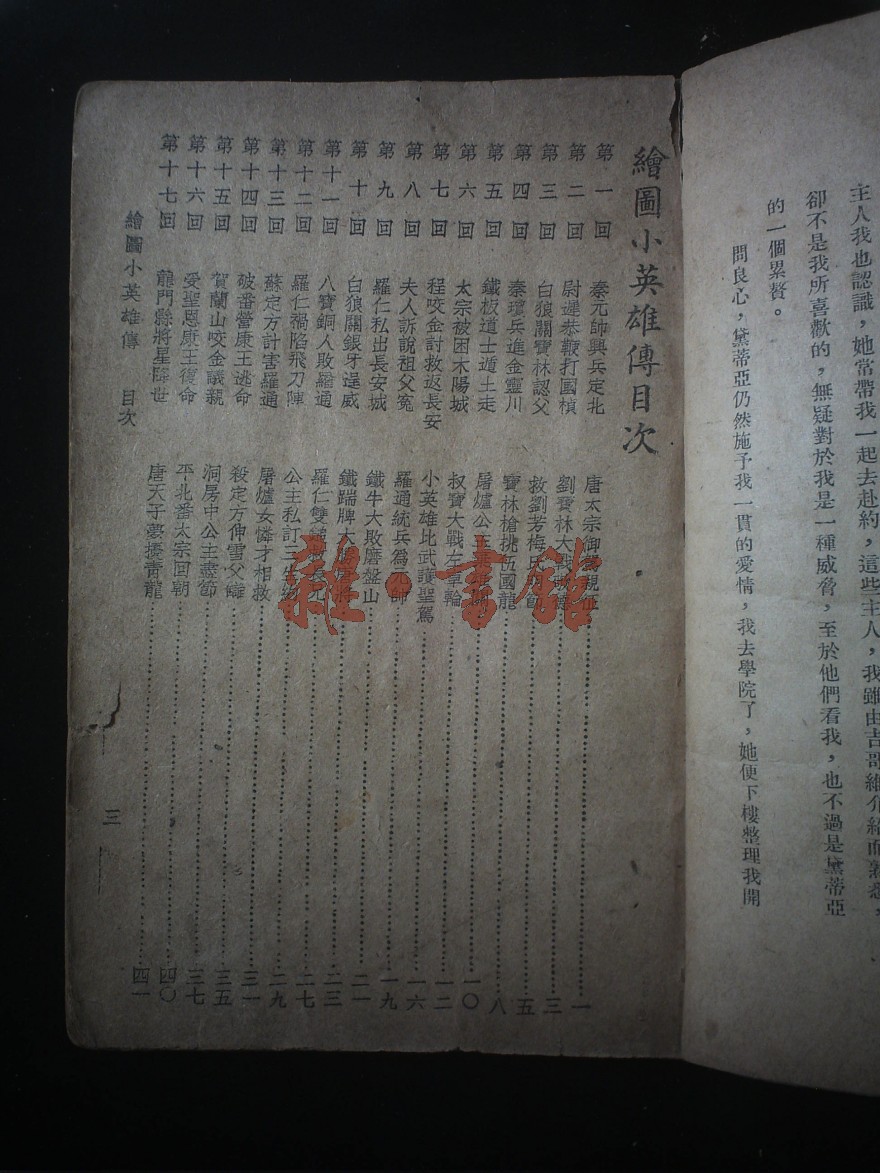 主人我也認識，她常帶我一起去赴約，這些主人，我雖由吉哥維介紹而熟悉，
卻不是我所喜歡的，無疑對於我是一種威脅，至於他們看我，也不過是黛蒂亞
的一個累贅。
問良心，黛蒂亞仍然施予我一貫的愛情，我去學院了，她便下樓整理我開
繪圖小英雄傳目次
第一回 秦元帥興兵定北 唐太宗御駕親征 一
第二回 尉遲恭鞭打國楨 劉寶林大戰 三
第三回 白狼關寶林認父 救劉芳梅氏 五
第四回 秦瓊兵進金靈川 寶林槍挑伍國龍 八
第五回 鐵板道士遁土走 屠爐公主 一〇
第六回 太宗被困木陽城 叔寶大戰左車輪 一二
第七回 程咬金討救返長安 小英雄比武護聖駕 一六
第八回 夫人訴說祖父冤 羅通統兵爲元帥 一九
第九回 羅仁私出長安城 鐵牛大敗磨盤山 二一
第十回 白狼關銀牙逞威 鐵踹牌大勝唐將 二三
第十一回 八寶銅人敗羅通 羅仁雙 二七
第十二回 羅仁禍陷飛刀陣 公主私訂三生約 二九
第十三回 蘇定方計害羅通 屠爐女憐才相救 三一
第十四回 破番營康王逃命 殺定方伸雪父讎 三五
第十五回 賀蘭山咬金議親 洞房中公主盡節 三七
第十六回 受聖恩康王復命 平北番太宗回朝 四〇
第十七回 龍門縣將星降世 唐天子夢擾青龍 四一
繪圖小英雄傳 目次
三
雜·書館